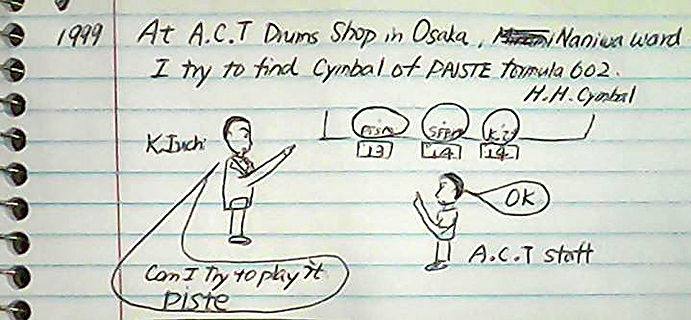 1999 At A.C.T Drums Shop in Osaka, Naniwa ward
I try to find Cymbal of PAISTE formula 602.
H.H. Cymbal
K.Iuchi
13 14 14
OK
A.C.T staff
Can I Try to play it
Piste